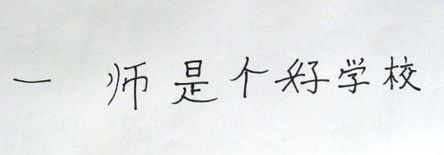 一师是个好学校